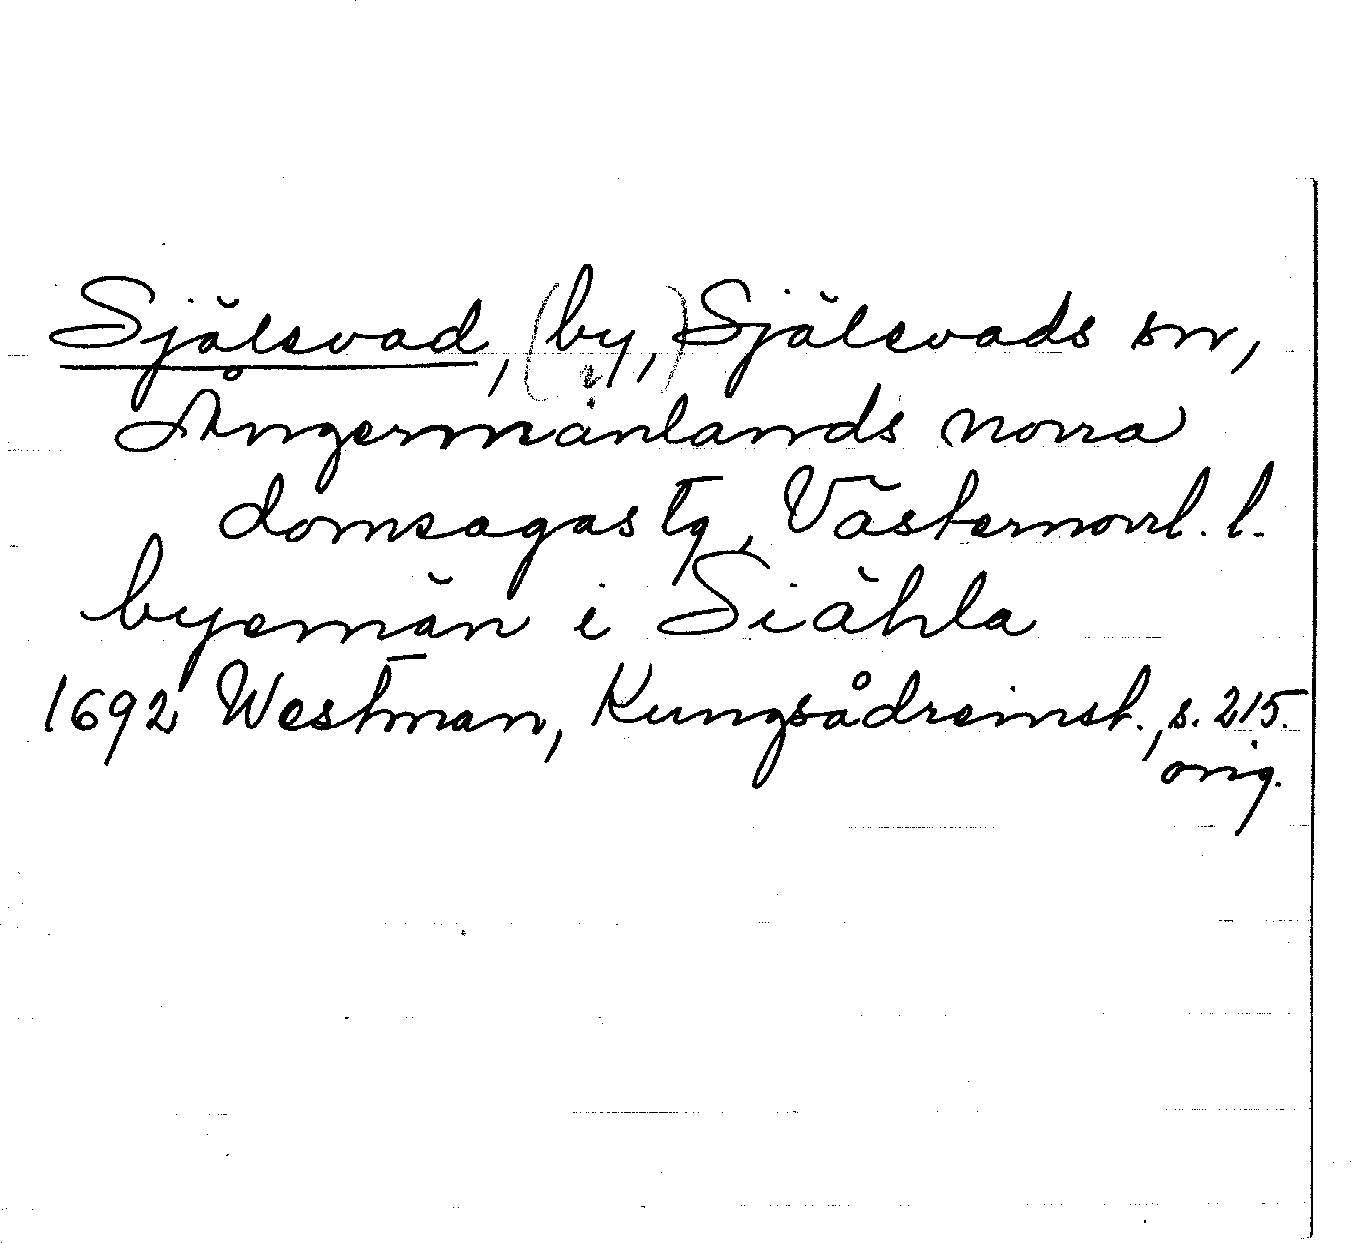 Själevad, (by,) Själevads sn,
i
Ångermanlands norra
domsagas tg, Västernorrl. l.
byemän i Siähla
1692 Westman, Kungsådreinst., s. 215.
orig.